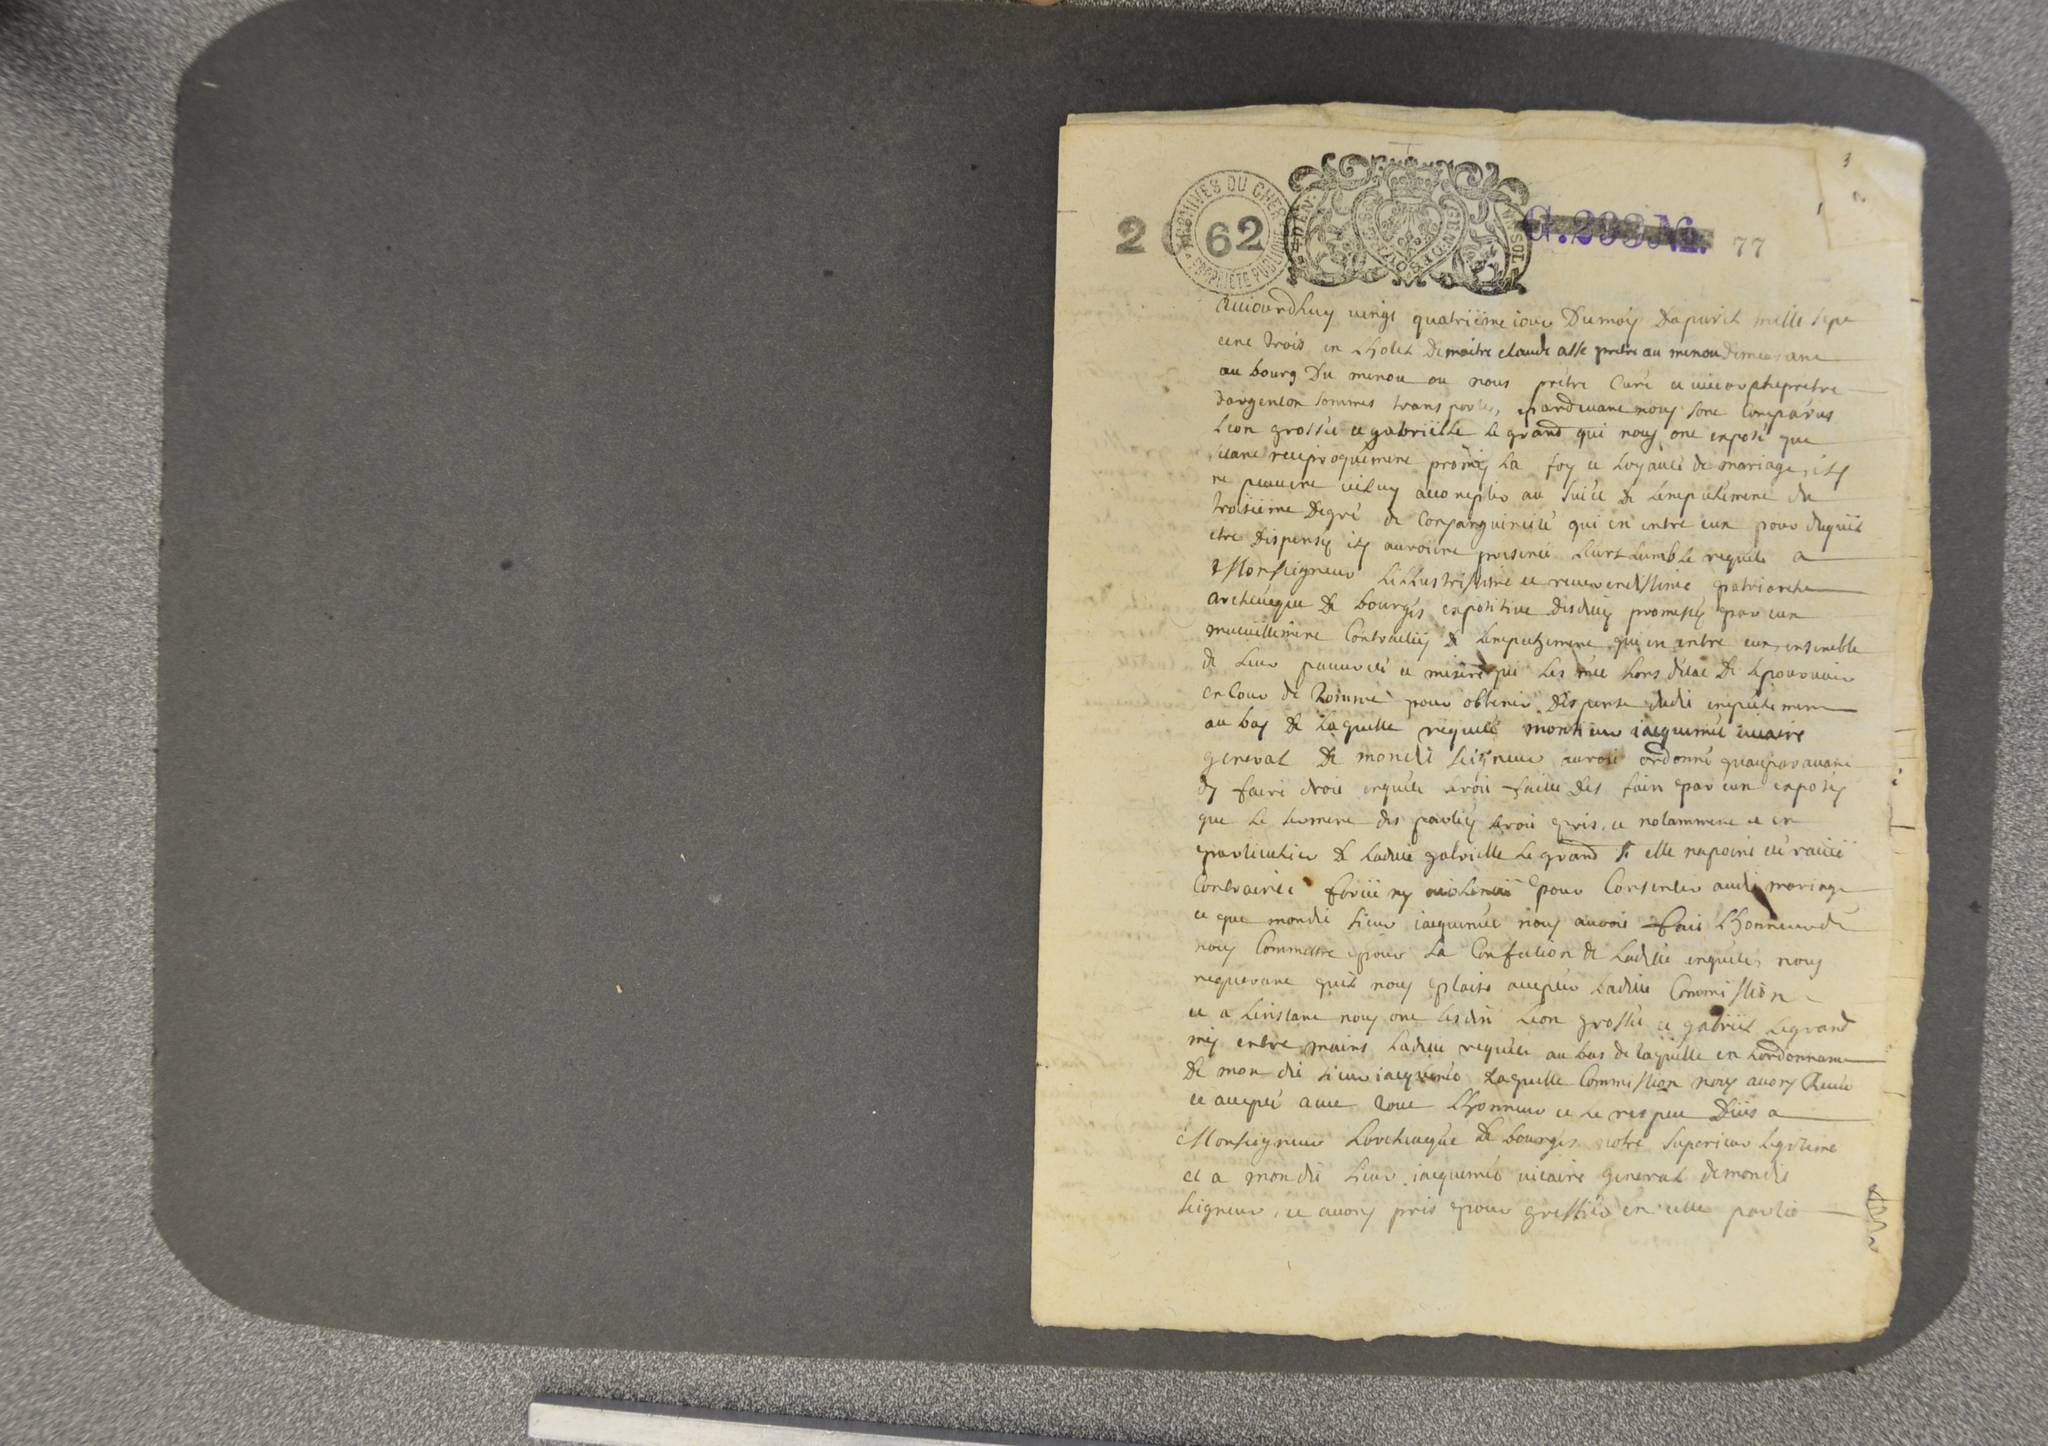 3
2 62 G.293 77
ARCHIVES DU CHER
PROPRIETE PUBLIQUE
auiourdhuy vingt quatriéme iour Du mois Dapvril mille sept
cent trois en Lhotel De maitre claude asse pretre au menou demeurant
au bourg Du menou ou nous prétre Curé et archipretre
dargenton sommes transportes, pardevant nous sont Comparus
Leon grossét et gabriélle Le grand qui nous ont exposé que
reciproquement promis La foy et Loyauté de mariage, ils
ne peuvent iceluy accomplir au suiét De Lempechement du
troisiéme Degré de Consanguinité qui en entre eux pour duquél
etre Dispensés ils auroient presenté Leurs humble requéte a
Monseigneur Lillustrissime et reverendissime patriarche
archeveque De bourges expositive Desdites promesses par eux
mutuellement Contractés & Lempechement qui en entre eux ensemble
de Leur pauvreté et misere qui Les mét hors détat De se pourvoir
en Cour de Romme pour obtenir Dispense dudit empéchement
au bas De Laquelle requéte monsieur iacquemét vicaire
general De mondit seigneur auroit ordonné quauparavant
Dy faire droit enquéte seroit faitte Des fait par eux exposés
que Le serment des parties seroit pris, et notamment et en
particulier De Ladite gabrielle Le grand si elle napoint été
Contrainte forcée ny violentée pour Consentir audit mariage
et que mondit sieur iacquemét nous auroit fait Lhonneur de
nous Commettre pour La Confection de Ladite enquéte, nous
requerant quil nous plaise accepter Ladite Commission
et a Linstant nous ont Lesdits Leon grossét et gabriél Legrand
mis entre mains Ladite requéte au bas de laquelle en Lordonnance
De mon dit sieur iacquemét Laquelle Commission nous avons Receue
et accepté avec tout Lhonneur et Le respect Deüs a
Monseigneur Larcheveque De bourges notre superieur Legitime
et a mon dit sieur iacquemét vicaire general demondit
seigneur, et avons pris pour greffier en cette partie